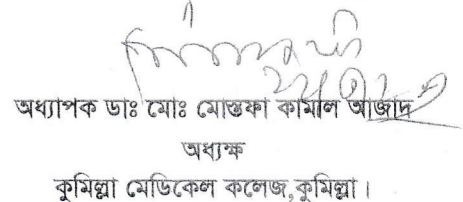 অধ্যাপক ডাঃ মোঃ মোস্তফা কামাল আজাদ
অধ্যক্ষ
কুমিল্লা মেডিকেল কলেজ,কুমিল্লা।